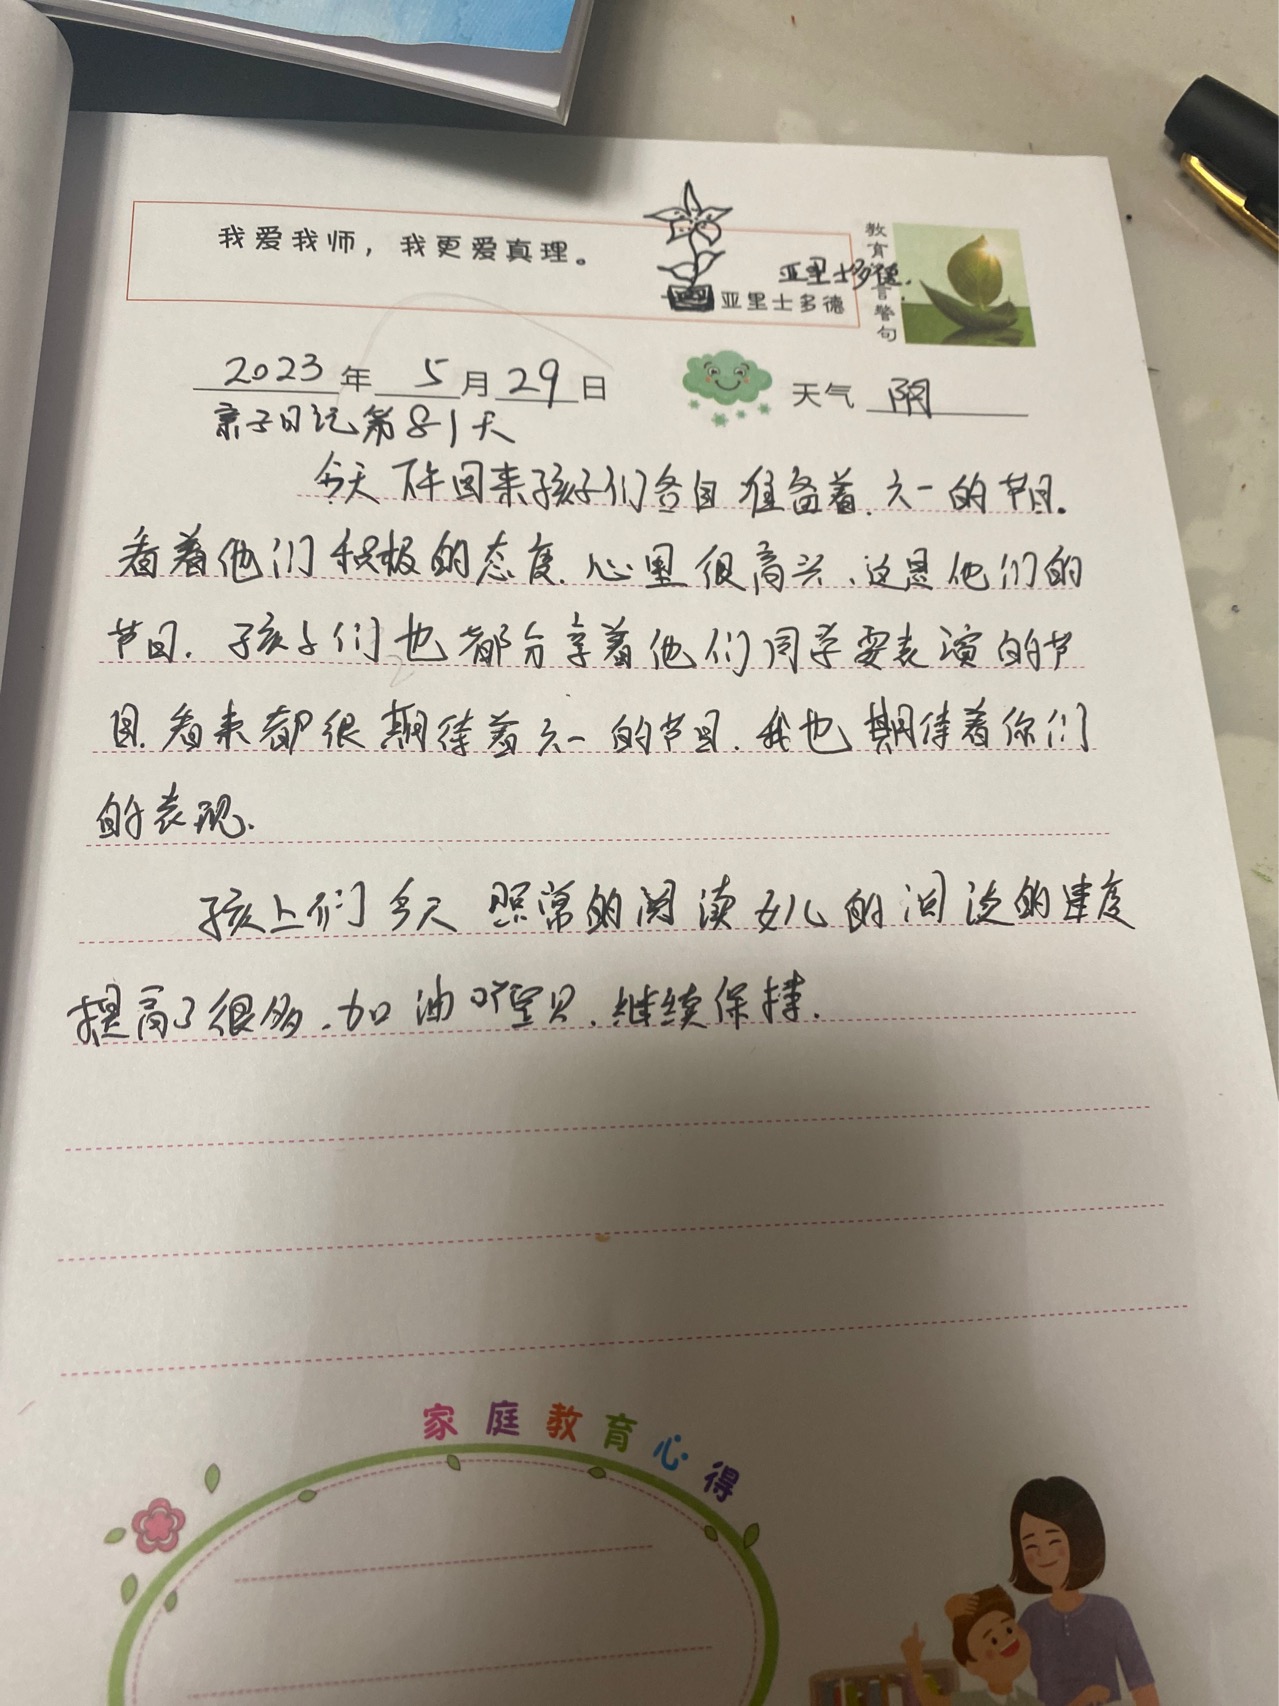 我爱我师，我更爱真理。
亚里士多德.
亚里士多德
教育 言警句
2023年 5月29日
天气 阴
亲子日记第81天
今天下午回来孩子们各自准备着.六一的节目.
看着他们积极的态度.心里很高兴.这是他们的
节目.孩子们也都分享着他们同学要表演的节
目.看来都很期待着六一的节目.我也期待着你们
的表现.
孩子们今天照常的阅读女儿的阅读的速度
提高了很多.加油吖宝贝.继续保持.
家庭教育心得